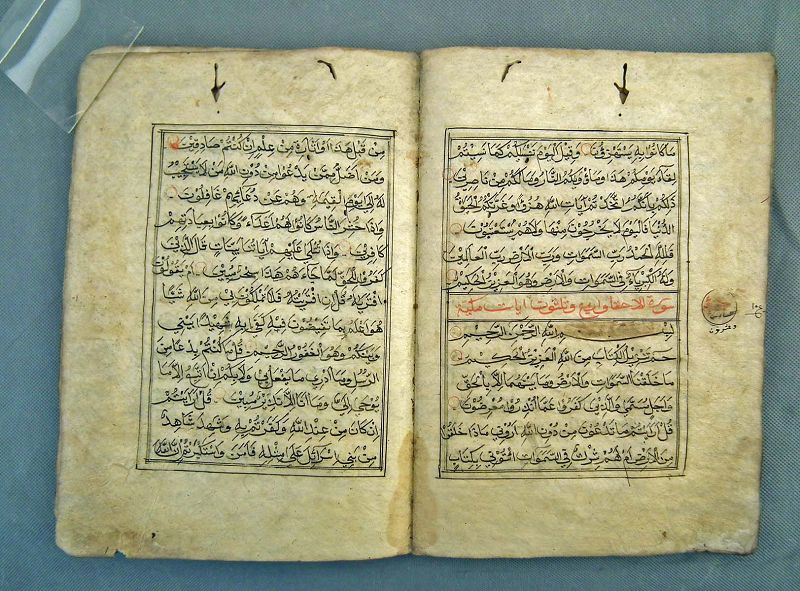 ما كانوا به يستهزؤن وقيل اليوم ننسيكم كما نسيتم
لقاء يومكم هذا ومأويكم النار وما لكم من ناصرين
ذلكم بأنكم اتخذتم آيات الله هزوا وغرتكم الحيوة
الدنيا فاليوم لا يخرجون منها ولا هم يستعتبون
فلله الحمد رب السموات ورب الارض رب العالمين
وله الكبرياء في السموات والارض وهو العزيز الحكيم
سورة الاحقاف اربع وثلثون ايات مكية
بسم الله الرحمن الرحيم
حم تنزيل الكتاب من الله العزيز الحكيم
ما خلقنا السموات والارض وما بينهما الا بالحق
واجل مسمى والذين كفروا عما انذروا معرضون
قل ارايتم ما تدعون من دون الله اروني ماذا خلقوا
من الارض ام لهم شرك في السموات ائتوني بكتاب
من قبل هذا او اثارة من علم ان كنتم صادقين
ومن اضل ممن يدعوا من دون الله من لا يستجيب
له الى يوم القيمة وهم عن دعائهم غافلون
واذا حشر الناس كانوا لهم اعداء وكانوا بعبادتهم
كافرين واذا تتلى عليهم آياتنا بينات قال الذين
كفروا للحق لما جاءهم هذا سحر مبين ام يقولون
افتريه قل ان افتريته فلا تملكون لي من الله شيئا
هو اعلم بما تفيضون فيه كفى به شهيدا بيني
وبينكم وهو الغفور الرحيم قل ما كنت بدعا من
الرسل وما ادري ما يفعل بي ولا بكم ان اتبع الا ما
يوحى الي وما انا الا نذير مبين قل ارايتم
ان كان من عند الله وكفرتم به وشهد شاهد
من بني اسرائل على مثله فامن واستكبرتم ان الله